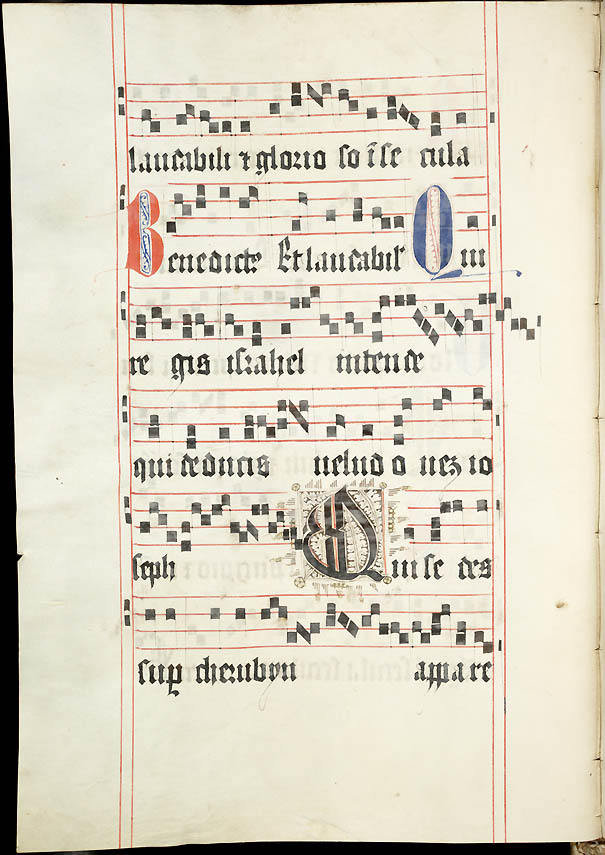 laudabili ⁊ glorio so ī se cula
Benedict⁹ Et laudabil' Qui
re gis israhel intende
qui deducis uelud o uez io
seph Qui se des
sup cherubyn appa re